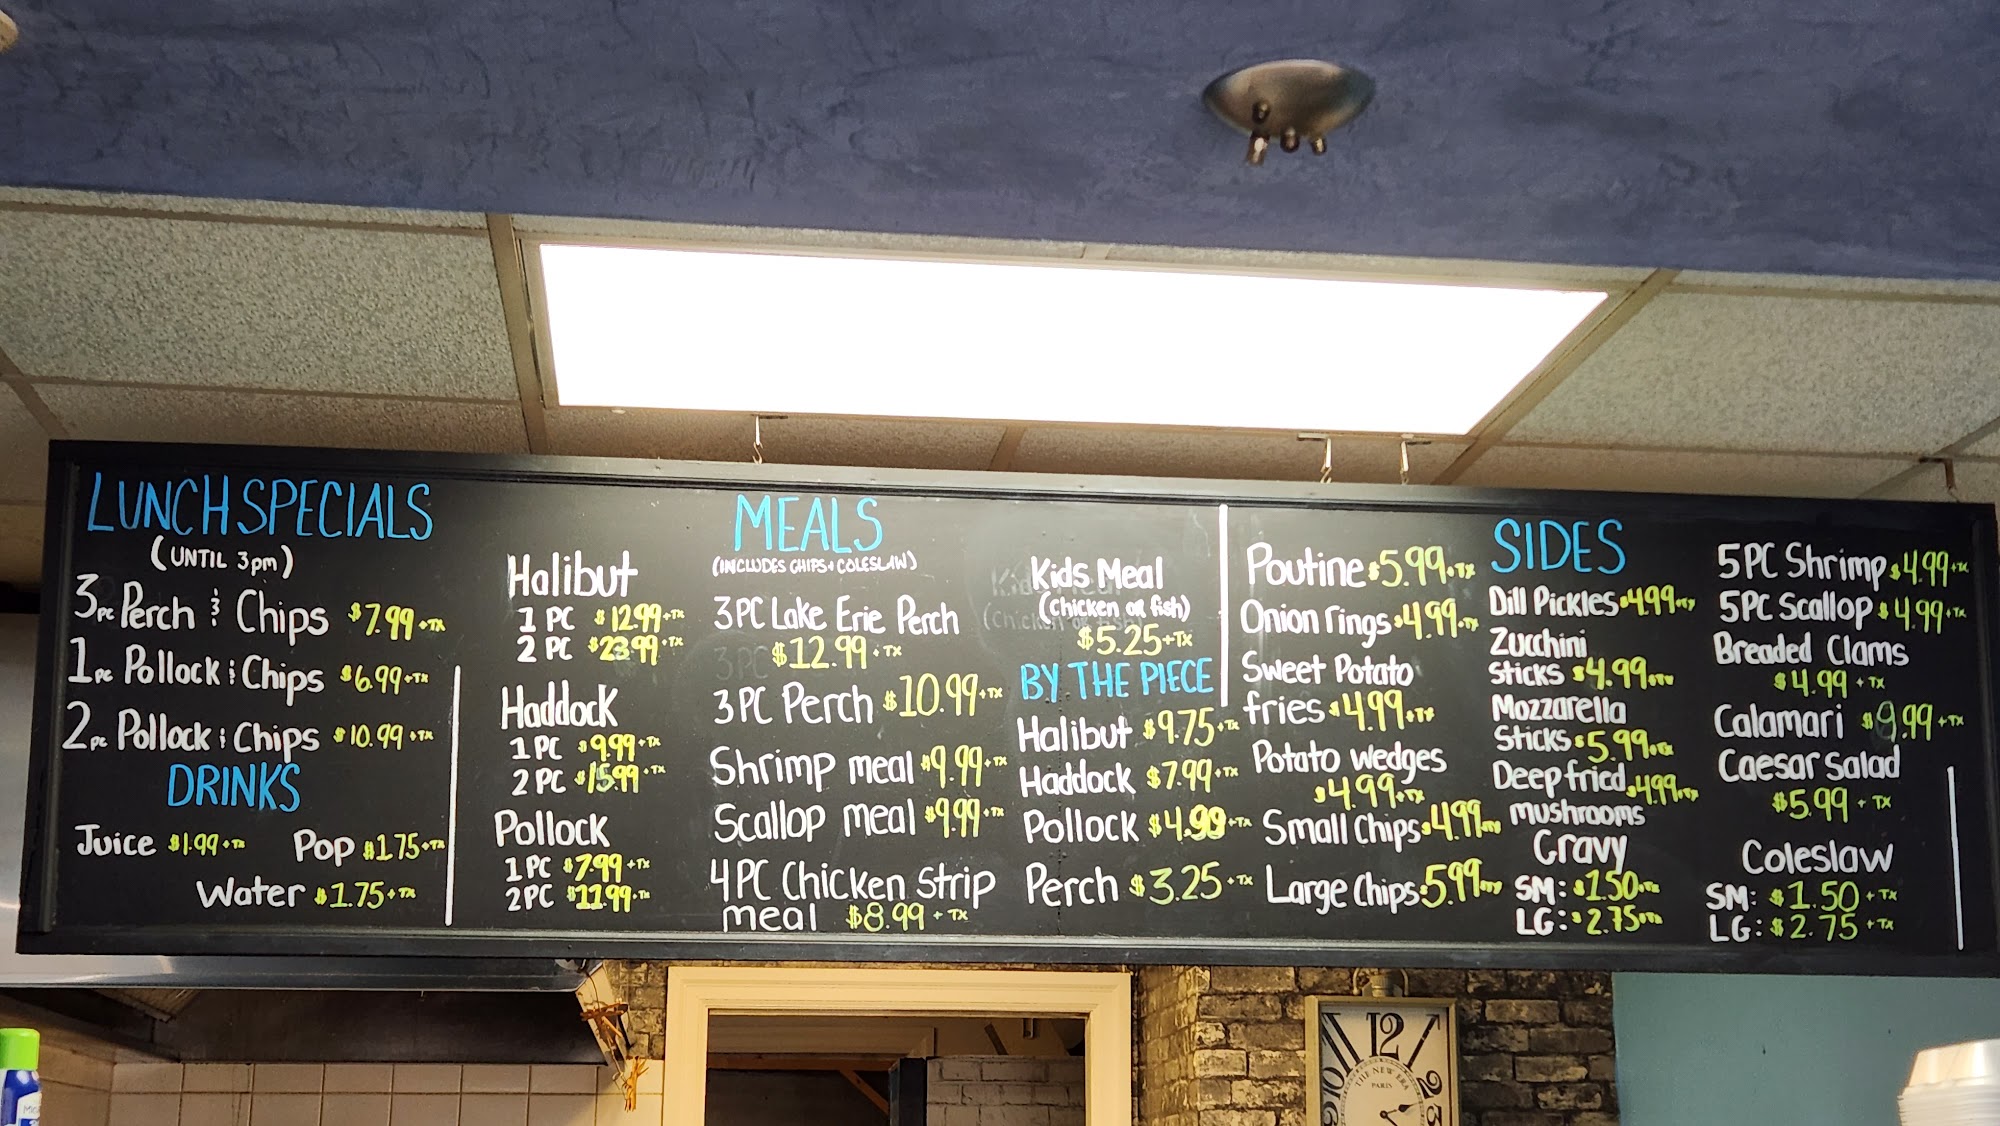 LUNCH SPECIALS
(UNTIL 3pm)
3pc Perch & Chips $7.99+TX
1pc Pollock & Chips $6.99+TX
2pc Pollock & Chips $10.99+TX
DRINKS
Juice $1.99+TX
Pop $1.75+TX
Water $1.75+TX
MEALS
(INCLUDES CHIPS+COLESLAW)
Halibut
1 PC $12.99+TX
2 PC $23.99+TX
Haddock
1 PC $9.99+TX
2 PC $15.99+TX
Pollock
1 PC $7.99+TX
2 PC $11.99+TX
3PC Lake Erie Perch
$12.99+TX
3PC Perch $10.99+TX
Shrimp meal $9.99+TX
Scallop meal $9.99+TX
4PC Chicken Strip
meal $8.99+TX
Kids Meal
(chicken or fish)
$5.25+TX
BY THE PIECE
Halibut $9.75+TX
Haddock $7.99+TX
Pollock $4.99+TX
Perch $3.25+TX
SIDES
Poutine $5.99+TX
Onion rings $4.99+TX
Sweet Potato
fries $4.99+TX
Potato wedges
$4.99+TX
Small Chips $4.99+TX
Large Chips $5.99+TX
Dill Pickles $4.99+TX
Zucchini
Sticks $4.99+TX
Mozzarella
Sticks $5.99+TX
Deep fried $4.99+TX
mushrooms
Gravy
SM: $1.50+TX
LG: $2.75+TX
5PC Shrimp $4.99+TX
5PC Scallop $4.99+TX
Breaded Clams
$4.99+TX
Calamari $9.99+TX
Caesar Salad
$5.99+TX
Coleslaw
SM: $1.50+TX
LG: $2.75+TX
12
10
2
3
THE NEW ERA
PARIS